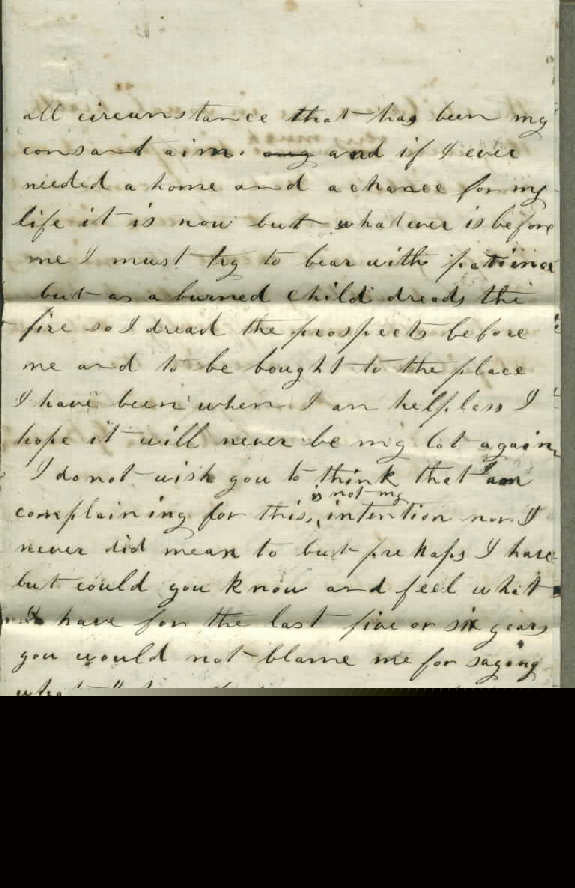 all circumstance that has been my
consant aim. any and if I ever
needed a home and a chance for my
life it is now but whatever is before
me I must try to bear with patiince
but as a burned child dreads the
fire so I dread the prospects before
me and to be bought to the place
I have been when I am helpless I
hope it will never be my lot again
I do not wish you to think that I am
is not my
complaining for this, intention nor I
never did mean to but prehaps I have
but could you know and feel what
I have for the last five or six years
you would not blame me for saying
what